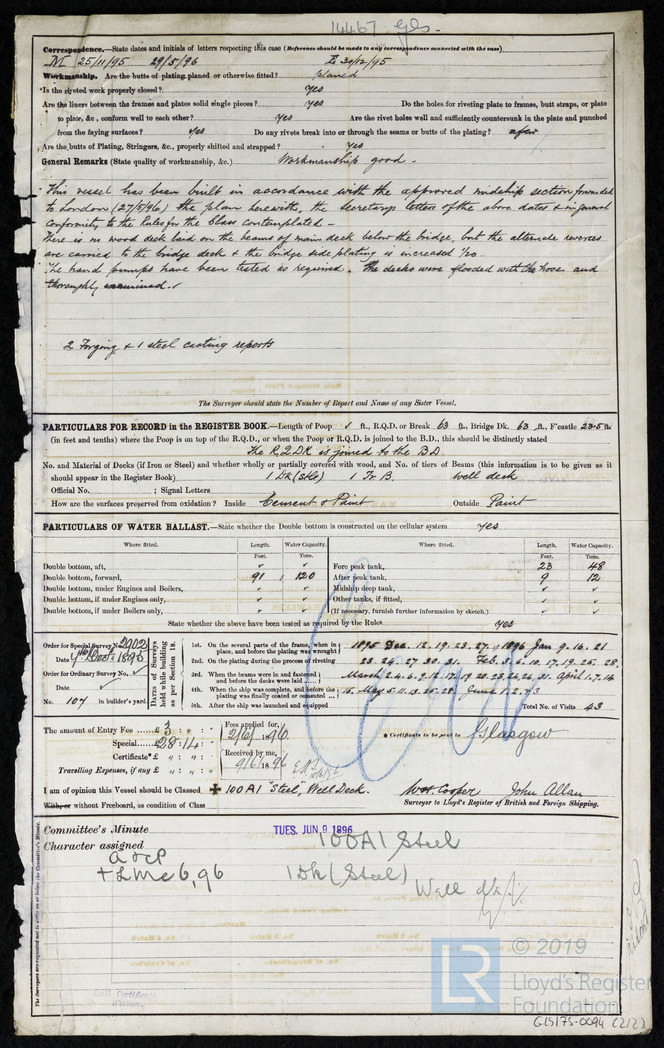 14467 Gls.
Correspondence.—State dates and initials of letters respecting this case (Reference should be made to any correspondence connected with the case)
M 25/11/95 29/5/96 E 30/12/95
Workmanship. Are the butts of plating planed or otherwise fitted? planed
Is the riveted work properly closed? Yes
Are the liners between the frames and plates solid single pieces? yes Do the holes for riveting plate to frames, butt straps, or plate
to plate, &c., conform well to each other? Yes Are the rivet holes well and sufficiently countersunk in the plate and punched
from the faying surfaces? Yes Do any rivets break into or through the seams or butts of the plating? a few
Are the butts of Plating, Stringers, &c., properly shifted and strapped? Yes
General Remarks (State quality of workmanship, &c.) Workmanship good.
This vessel has been built in accordance with the approved midship section forwarded
to London (27/5/96) the plan herewith, the Secretarys letters of the above dates & in general
conformity to the Rules for the Class contemplated—
There is no wood deck laid on the beams of main deck below the bridge, but the alternate reverses
are carried to the bridge deck & the bridge side plating is increased 1/20.
The hand pumps have been tested as required. The decks were flooded with the hose and
thoroughly examined.
2 Forging & 1 steel casting reports
The Surveyor should state the Number of Report and Name of any Sister Vessel.
PARTICULARS FOR RECORD in the REGISTER BOOK.—Length of Poop 1 ft., R.Q.D. or Break 63 ft., Bridge Dk. 63 ft., F'castle 23.5 ft.
(in feet and tenths) where the Poop is on top of the R.Q.D., or when the Poop or R.Q.D. is joined to the B.D., this should be distinctly stated
The R.Q.Dk is joined to the B.D.
No. and Material of Decks (if Iron or Steel) and whether wholly or partially covered with wood, and No. of tiers of Beams (this information is to be given as it
should appear in the Register Book) 1 Dk (Stl) 1 Tr B. Well deck
Official No. ; Signal Letters
How are the surfaces preserved from oxidation? Inside Cement & Paint Outside Paint
PARTICULARS OF WATER BALLAST.—State whether the Double bottom is constructed on the cellular system yes
Where fitted. Length. Water Capacity. Where fitted. Length. Water Capacity.
Feet. Tons. Feet. Tons.
Double bottom, aft, Fore peak tank, 23 48
Double bottom, forward, 91 120 After peak tank, 9 12
Double bottom, under Engines and Boilers, Midship deep tank,
Double bottom, if under Engines only, Other tanks, if fitted,
Double bottom, if under Boilers only, (If necessary, furnish further information by sketch.)
State whether the above have been tested as required by the Rules yes
Order for Special Survey No. 2902
Date 4th Dec 1895
Order for Ordinary Survey No.
Date
No. 107 in builder's yard.
DATES of Surveys held while building as per Section 18.
1st. On the several parts of the frame, when in place, and before the plating was wrought 1895 Dec. 12. 19. 23. 27. 1896 Jan 9. 16. 21
2nd. On the plating during the process of riveting 23. 24. 27. 30. 31. Feb. 3. 6. 10. 17. 19. 25. 28.
3rd. When the beams were in and fastened, and before the decks were laid March 2. 4. 6. 9. 12. 17. 19. 20. 23. 24. 26. 31. April 1. 7. 14
4th. When the ship was complete, and before the plating was finally coated or cemented 15. May 5. 11. 13. 25. 28. June 1. 2. & 3
5th. After the ship was launched and equipped Total No. of Visits 43
The amount of Entry Fee £ 3 : " : "
Special £28 : 14 : "
Certificate* £ " : " : "
Travelling Expenses, if any £ " : " : "
Fees applied for,
2/6/1896
Received by me,
9/6/1896
* Certificate to be sent to Glasgow
I am of opinion this Vessel should be Classed + 100A1 "Steel", Well Deck.
With, or without Freeboard, as condition of Class
W.H. Cooper John Allan
Surveyor to Lloyd's Register of British and Foreign Shipping.
Committee's Minute TUES. JUN 9 1896
Character assigned 100A1 Steel
a & cp
+ LMC 6,96 1 Dk (Steel) Well dk
The Surveyors are requested not to write on or below the Committee's Minute.
© 2019
LR Lloyd's Register
Foundation
GLS175-0094 (2/2)